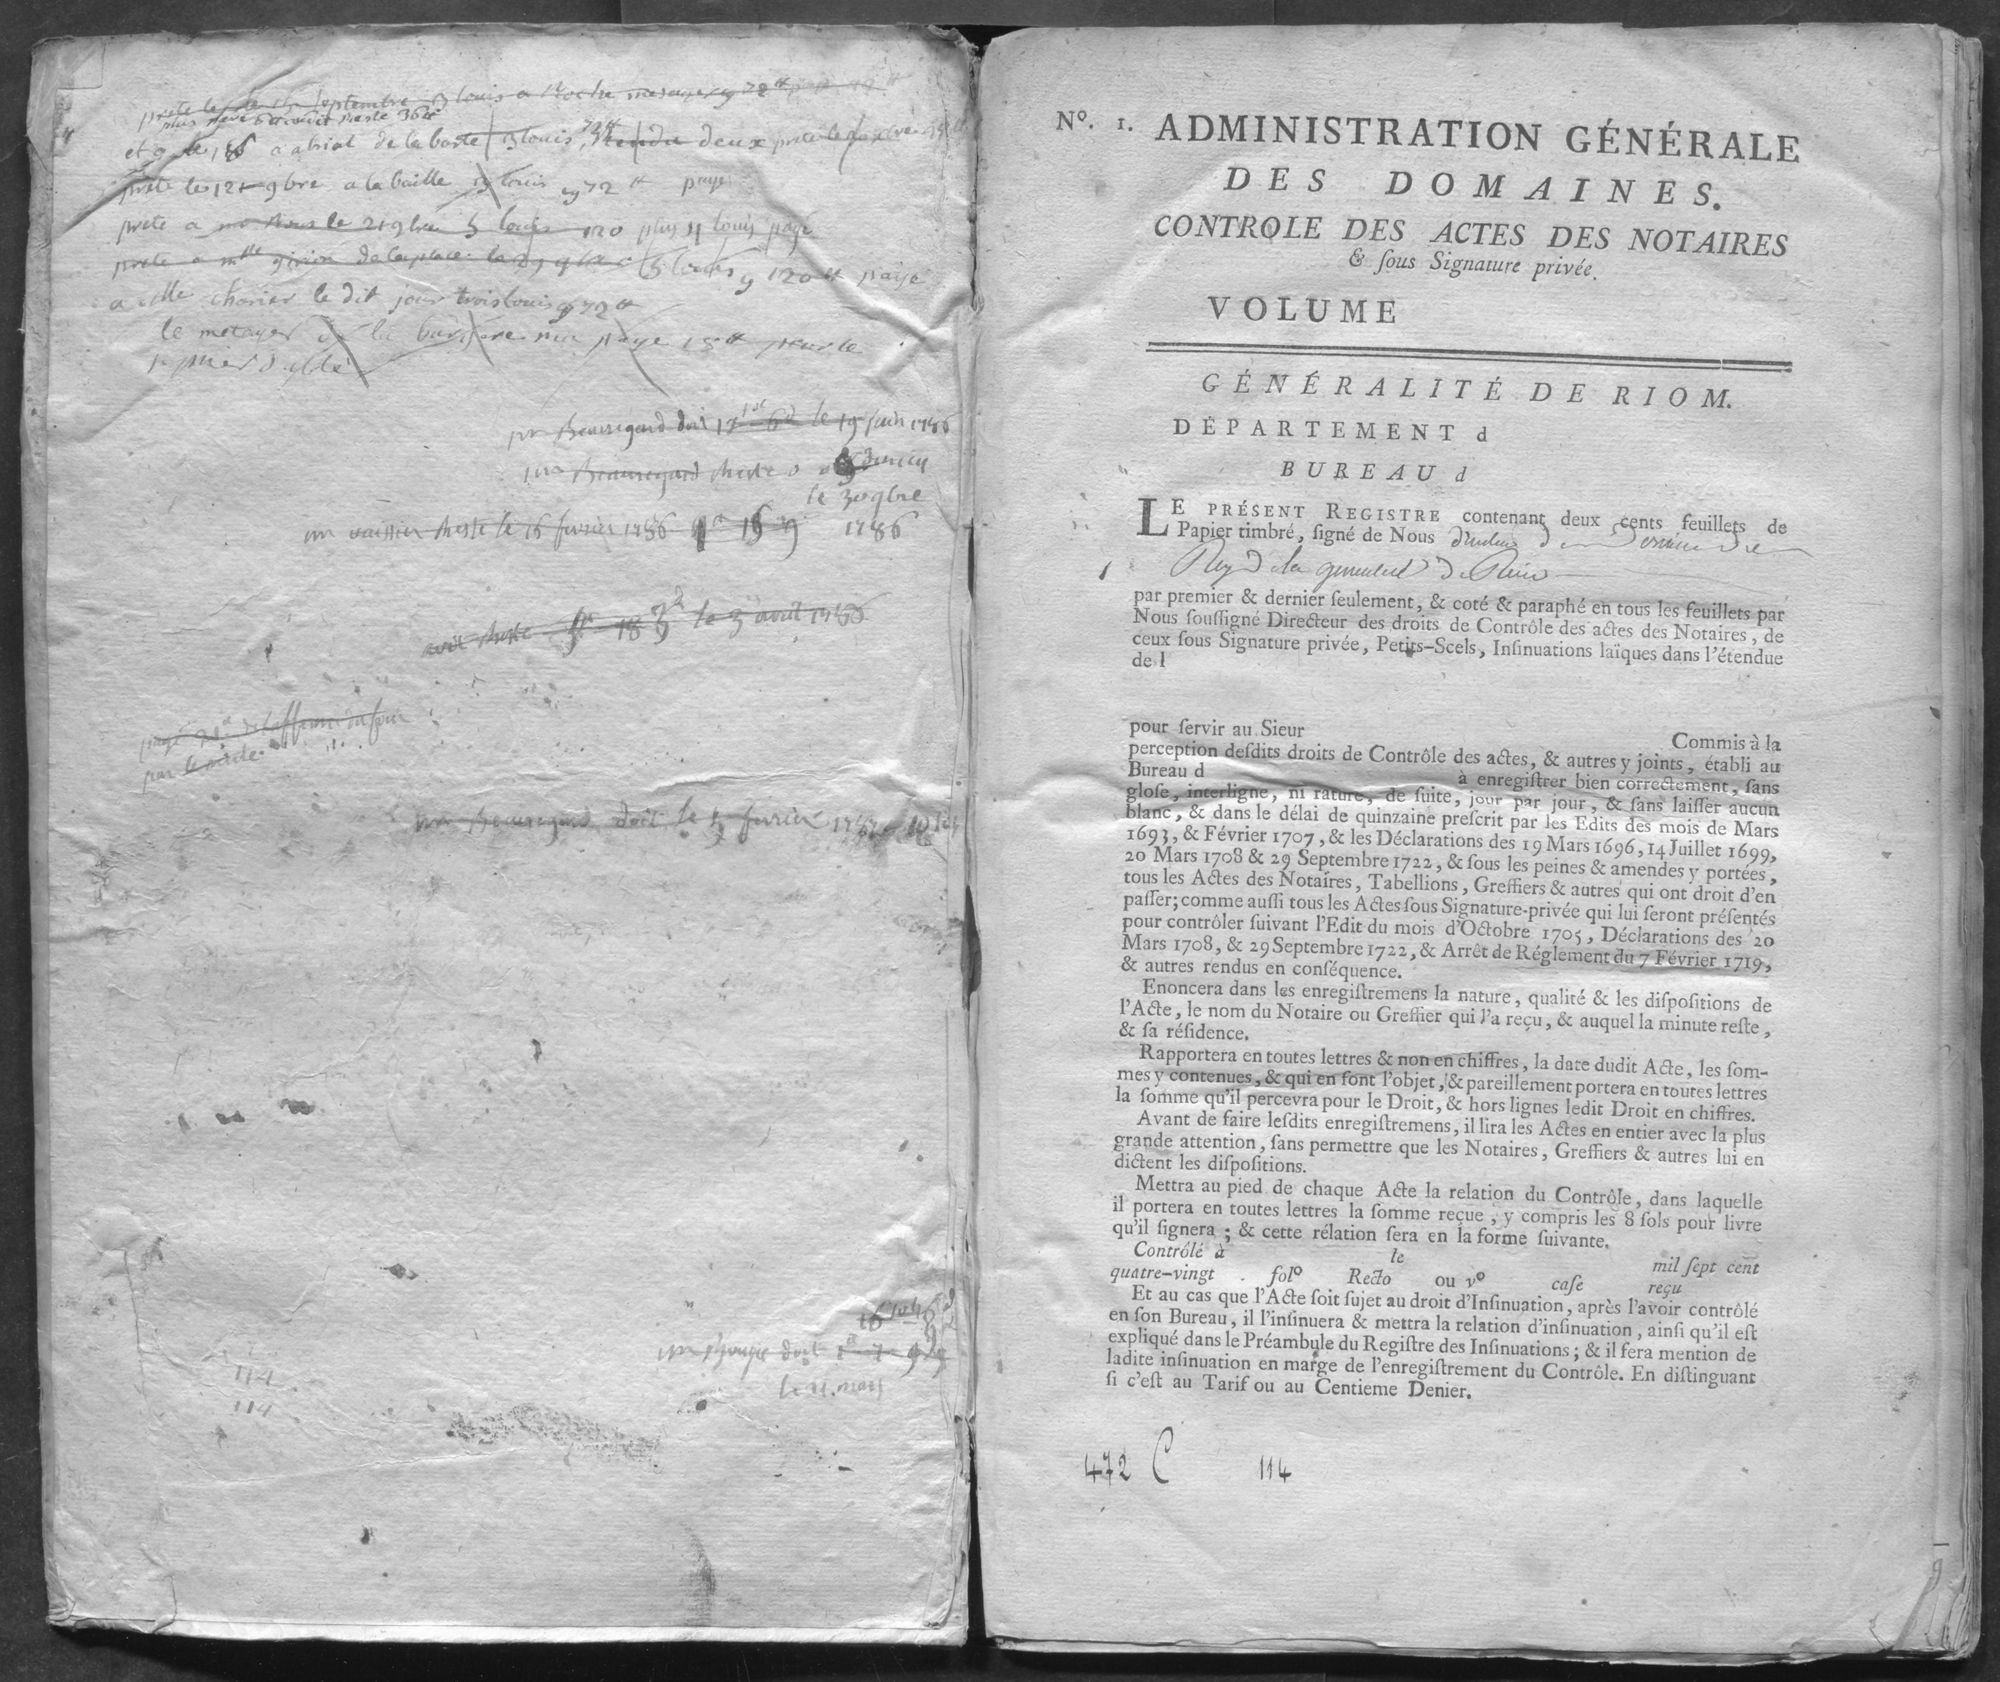 prete le septembre 3 louis a Roche
reste 36tt
et 9 le 16 a abriat de la boste 3 louis 72tt rendu deux prete le
prete le 12 9bre a la baille 3 louis 72tt payé
prete a le 21 9bre 5 louis 120 plus 4 louis payé
prete a mtte de la place le 9bre 5 louis 120tt payé
a chorier le dit jour trois louis 72tt
le metayer de la ma paye 15tt pour le
mr Beauregard doit le 19 juin 1786
mr Beauregard reste
le 30 9bre
mr vaissier reste le 16 fevrier 1786 16 9 1786
reste 18 3d le 3 avril 1786
payé de l'affaire du four
par le
mr Beauregard doit le 5 fevrier
16
mr doit
le 11 mars
114
114
Nº. 1. ADMINISTRATION GÉNÉRALE
DES DOMAINES.
CONTROLE DES ACTES DES NOTAIRES
& ſous Signature privée.
VOLUME
GÉNÉRALITÉ DE RIOM.
DÉPARTEMENT d
BUREAU d
LE PRÉSENT REGISTRE contenant deux cents feuillets de
Papier timbré, ſigné de Nous
de la generalité de Riom
par premier & dernier ſeulement, & coté & paraphé en tous les feuillets par
Nous ſouſſigné Directeur des droits de Contrôle des actes des Notaires, de
ceux ſous Signature privée, Petits-Scels, Inſinuations laïques dans l'étendue
de l
pour ſervir au Sieur Commis à la
perception deſdits droits de Contrôle des actes, & autres y joints, établi au
Bureau d à enregiſtrer bien correctement, ſans
gloſe, interligne, ni rature, de ſuite, jour par jour, & ſans laiſſer aucun
blanc, & dans le délai de quinzaine preſcrit par les Edits des mois de Mars
1693, & Février 1707, & les Déclarations des 19 Mars 1696, 14 Juillet 1699,
20 Mars 1708 & 29 Septembre 1722, & ſous les peines & amendes y portées,
tous les Actes des Notaires, Tabellions, Greffiers & autres qui ont droit d'en
paſſer; comme auſſi tous les Actes ſous Signature-privée qui lui ſeront préſentés
pour contrôler ſuivant l'Edit du mois d'Octobre 1705, Déclarations des 20
Mars 1708, & 29 Septembre 1722, & Arrêt de Réglement du 7 Février 1719,
& autres rendus en conſéquence.
Enoncera dans les enregiſtremens la nature, qualité & les diſpoſitions de
l'Acte, le nom du Notaire ou Greffier qui l'a reçu, & auquel la minute reſte,
& ſa réſidence.
Rapportera en toutes lettres & non en chiffres, la date dudit Acte, les ſom-
mes y contenues, & qui en font l'objet, & pareillement portera en toutes lettres
la ſomme qu'il percevra pour le Droit, & hors lignes ledit Droit en chiffres.
Avant de faire leſdits enregiſtremens, il lira les Actes en entier avec la plus
grande attention, ſans permettre que les Notaires, Greffiers & autres lui en
dictent les diſpoſitions.
Mettra au pied de chaque Acte la relation du Contrôle, dans laquelle
il portera en toutes lettres la ſomme reçue, y compris les 8 ſols pour livre
qu'il ſignera; & cette rélation ſera en la forme ſuivante.
Contrôlé à le mil ſept cent
quatre-vingt folº Recto ou vº caſe reçu
Et au cas que l'Acte ſoit ſujet au droit d'Inſinuation, après l'avoir contrôlé
en ſon Bureau, il l'inſinuera & mettra la relation d'inſinuation, ainſi qu'il eſt
expliqué dans le Préambule du Regiſtre des Inſinuations; & il fera mention de
ladite inſinuation en marge de l'enregiſtrement du Contrôle. En diſtinguant
ſi c'eſt au Tarif ou au Centieme Denier.
472 C 114